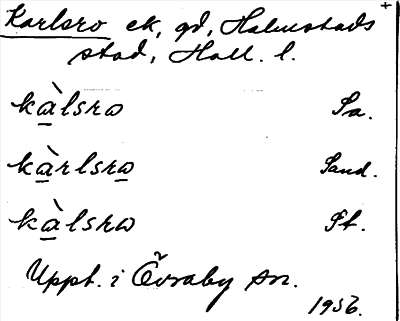 Karlsro ek, gd, Halmstads +
stad, Hall. l.
kàlsrω Sa.
kàrlsrω Sand.
kàlsrω St.
Uppt. i Övraby sn.
1936.